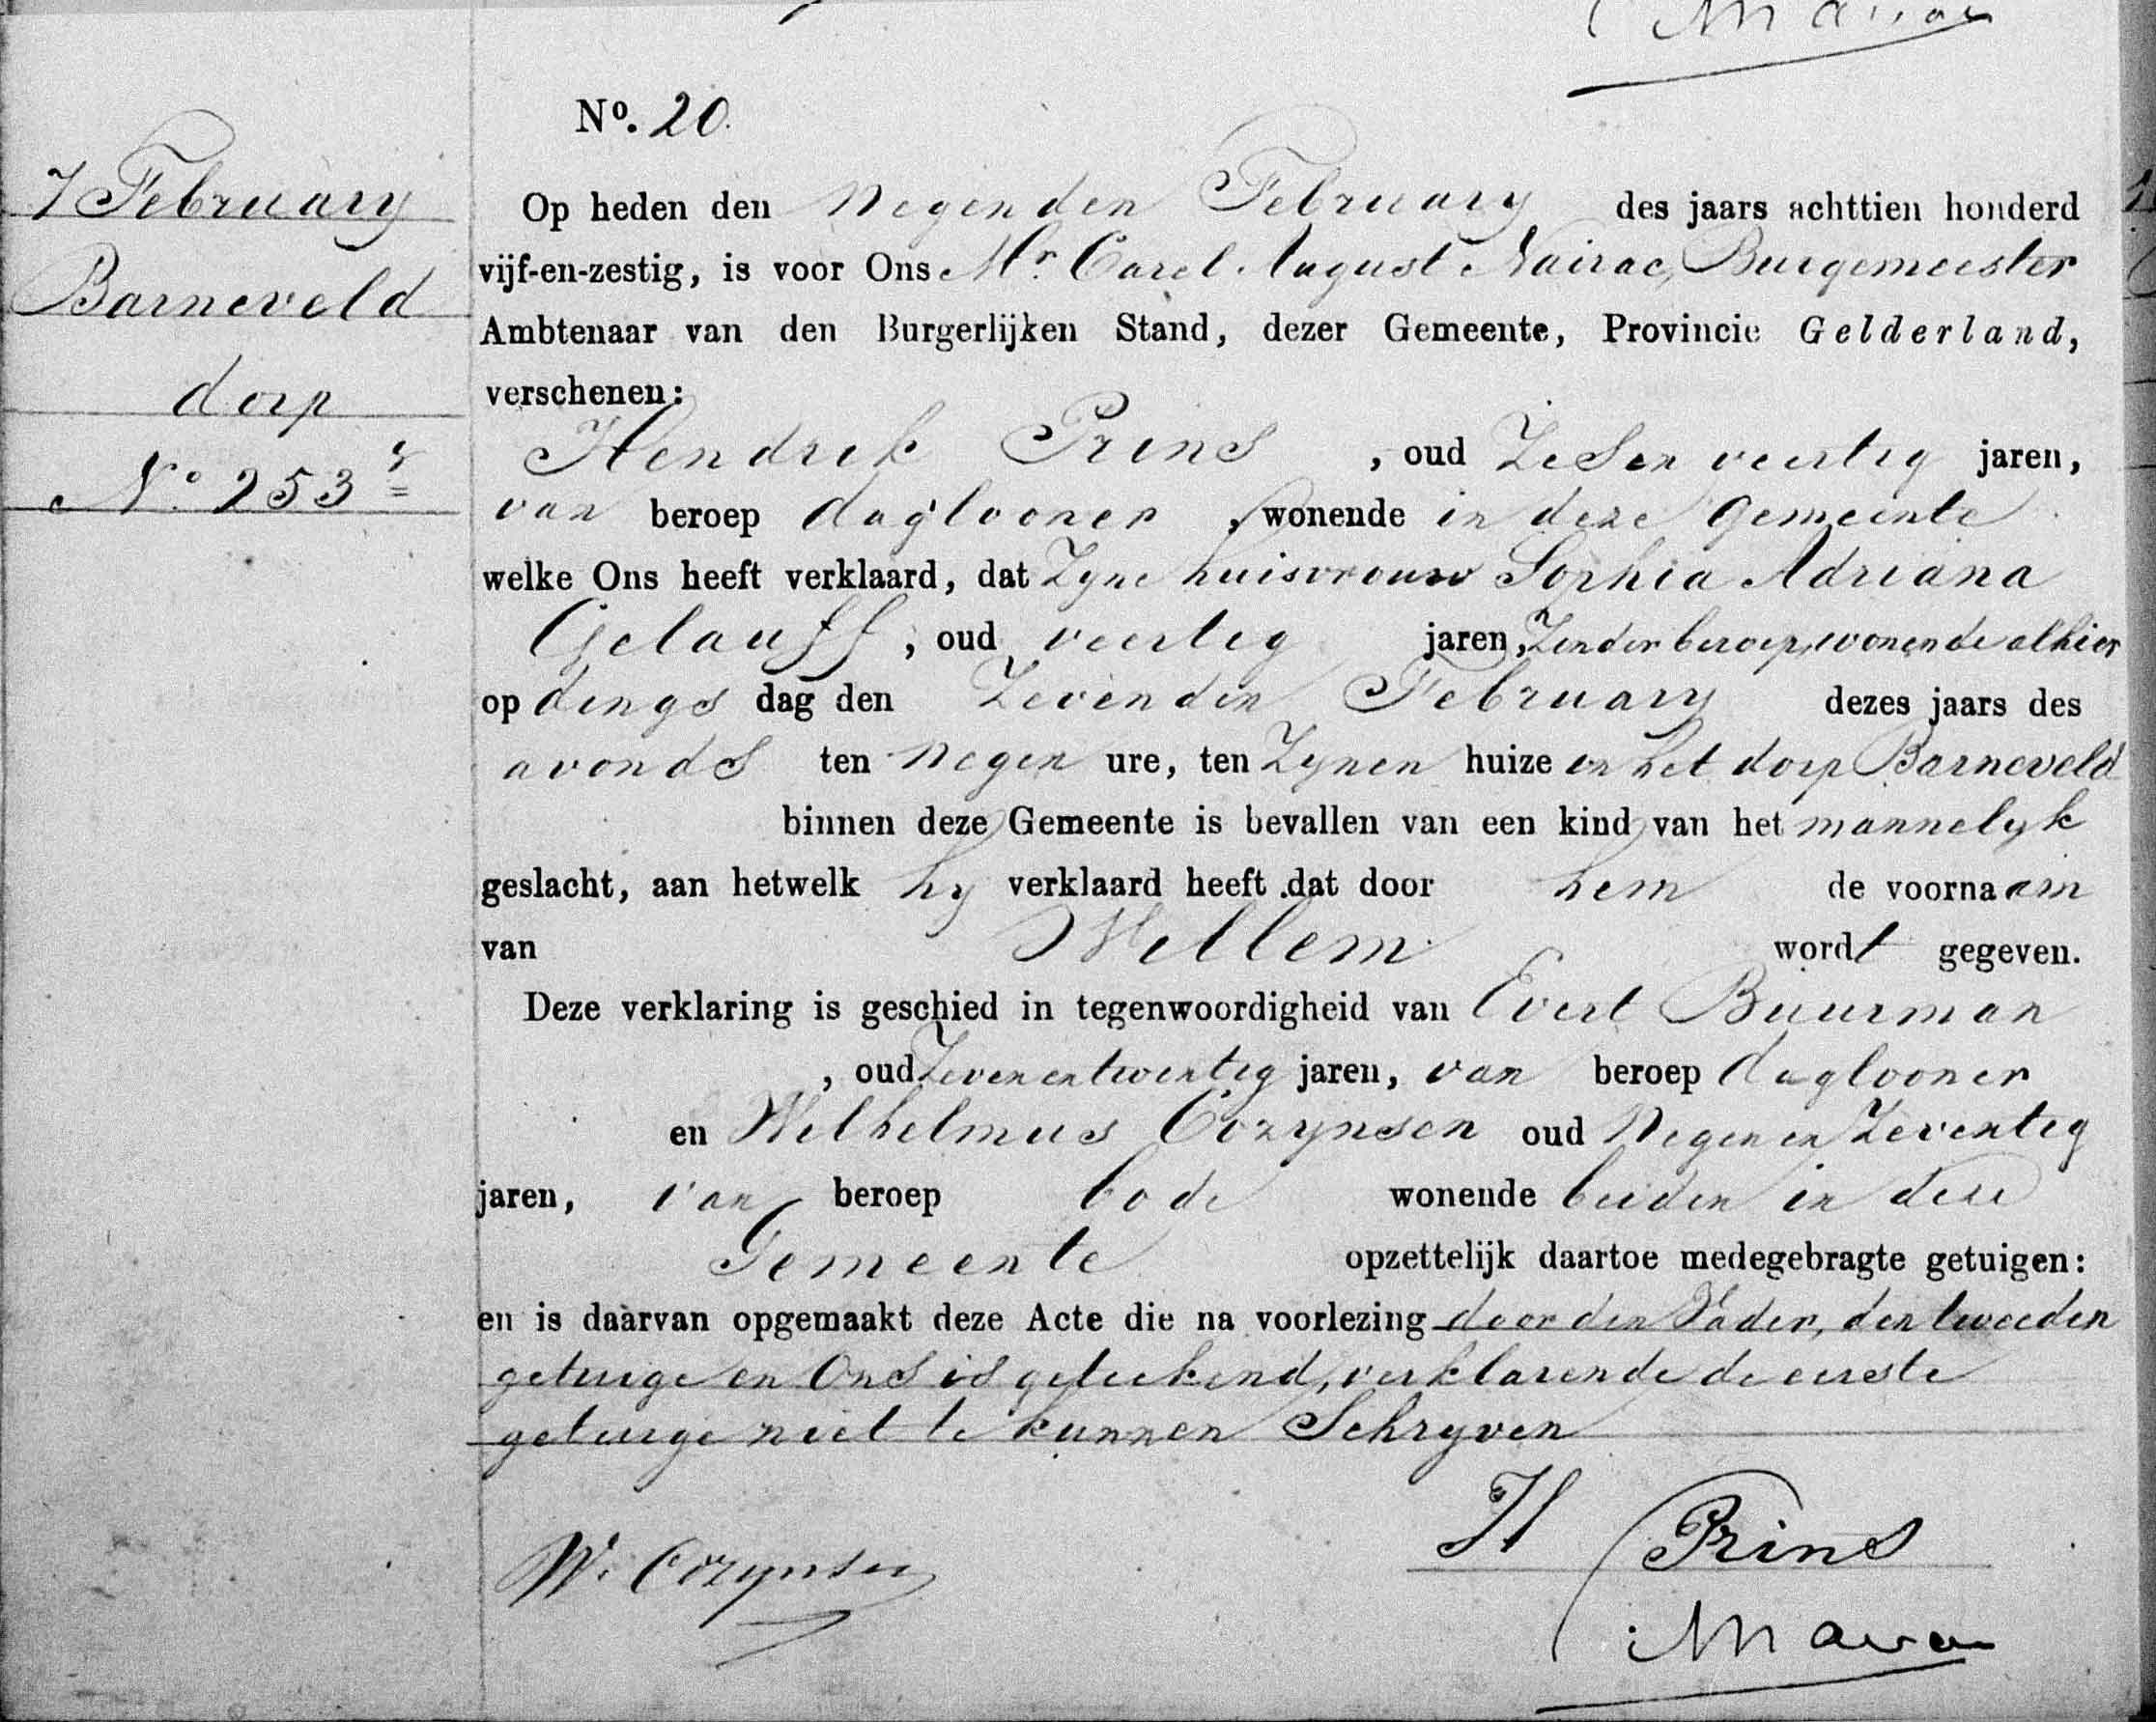 7 February
Barneveld
dorp
No 253
No. 20.
Op heden den Negenden February des jaars achttien honderd
vijf-en-zestig, is voor Ons Mr. Carel August Nairac, Burgemeester
Ambtenaar van den Burgerlijken Stand, dezer Gemeente, Provincie Gelderland,
verschenen:
Hendrik Prins , oud Zesen veertig jaren,
van beroep daglooner , wonende in deze Gemeente
welke Ons heeft verklaard, dat Zyne huisvrouw Sophia Adriana
Gelauff , oud veertig jaren, Zonder beroep, wonende alhier
op dings dag den Zevenden February dezes jaars des
avonds ten negen ure, ten Zynen huize in het dorp Barneveld
binnen deze Gemeente is bevallen van een kind van het mannelyk
geslacht, aan hetwelk hy verklaard heeft dat door hem de voornaam
van Willem wordt gegeven.
Deze verklaring is geschied in tegenwoordigheid van Evert Buurman
, oud Zevenentwintig jaren, van beroep daglooner
en Wilhelmus Cozynsen oud Negenen Zeventig
jaren, van beroep bode wonende beiden in deze
Gemeente opzettelijk daartoe medegebragte getuigen:
en is daarvan opgemaakt deze Acte die na voorlezing door den Vader, den tweeden
getuige en Ons is geteekend, verklarende de eerste
getuige niet te kunnen Schryven
W. Cozynsen
H Prins